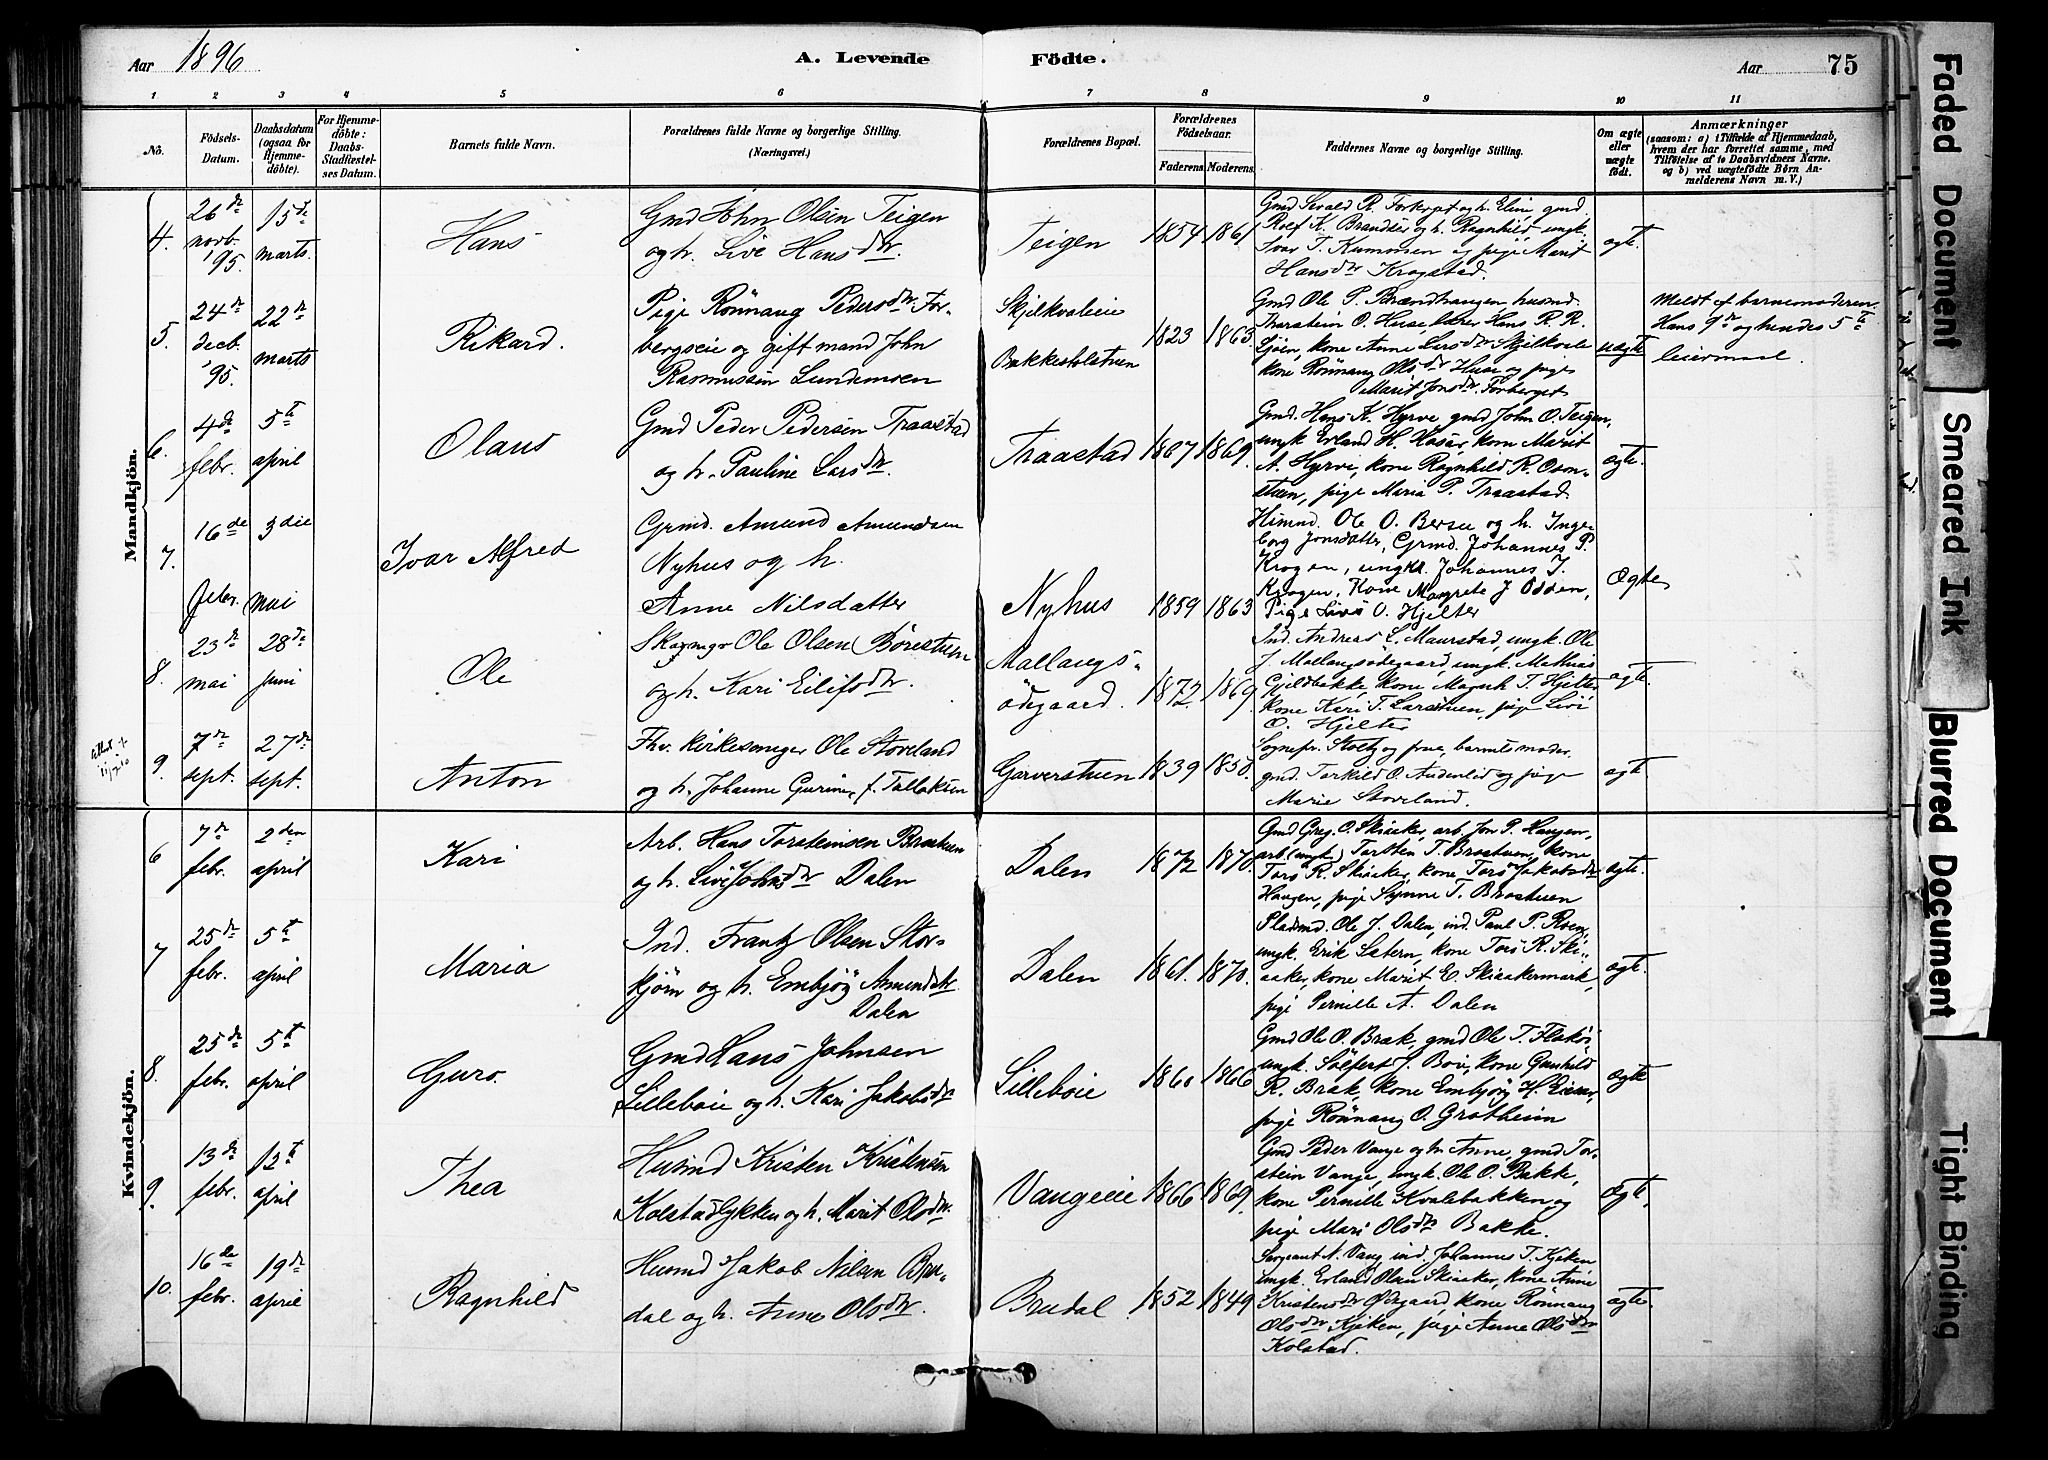 Aar 1896
A. Levende
Födte.
Aar
75
1 2 3 4 5 6 7 8 9 10 11
No.
Födsels-
Datum.
Daabsdatum
(ogsaa for
Hjemme-
döbte).
For Hjemme-
döbte:
Daabs-
Stadfæstel-
ses Datum.
Barnets fulde Navn.
Forældrenes fulde Navne og borgerlige Stilling.
(Næringsvei.)
Forældrenes Bopæl.
Forældrenes
Födselsaar.
Faderens. Moderens.
Faddernes Navne og borgerlige Stilling.
Om ægte
eller
uægte
födt.
Anmærkninger
(saasom: a) i Tilfælde af Hjemmedaab,
hvem der har forrettet samme, med
Tilföielse af to Daabsvidners Navne.
og b) ved uægtefödte Börn An-
melderens Navn m. V.)
Mandkjön.
4.
26de
novb.
'95.
15de
marts.
Hans
Gmd John Olsen Teigen
og h. Live Hansdtr.
Teigen
1854 1861
og h. Eline gmd.
og h. Ragnhild, ungk.
Ivar T. og pige Marit
Hansdtr Krogstad.
ægte
5.
24de
decb.
'95.
22de
marts
Rikard.
Pige Rönnaug Pedersdtr For-
bergseie og gift mand John
Rasmussen Lundemoen
Skjelkvaleeie
Bakkestolstuen
1823 1863
Gmd Ole P. Brændhaugen husmd.
Thorstein O. Huse, lærer Hans R. R.
kone Anne Larsdtr Skjelkvale
kone Rönnaug Olsdtr Huse og pige
Marit Jonsdtr Forberget
uægte
Meldt af barnemoderen.
Hans 1de og hendes 5te
leiermaal.
6.
4de
febr.
5te
april
Olaus
Gmd Peder Pedersen Traastad
og h. Pauline Larsdtr.
Traastad
1867 1869.
Gmd. Hans A. Hyrve, gmd John O. Teigen,
ungk Erland H. kone Marit
A. Hyrve, kone Ragnhild R.
stuen, pige Maria P. Traastad.
ægte.
7.
16de
febr.
3die
mai
Ivar Alfred
Grmd. Amund Amundsen
Nyhus og h.
Anne Nilsdatter
Nyhus
1859 1863
Ole O. og h. Inge-
borg Jonsdatter, Grmd. Johannes P.
Krogen, ungkl. Johannes I.
Krogen, Kone Margrete J Odden,
Pige Live O. Hjelter
Ægte
8.
23de
mai
28de
juni
Ole
Ole Olsen Börestuen
og h. Kari Eilifsdtr.
Mallangs-
ödegaard.
1872. 1869.
Ind. Andreas L. Maurstad, ungk. Ole
J. Mallangsödegaard, ungk. Mathias
Gjeldbakke, kone Magnh. T. Hjelter
kone Kari T. Larsstuen, pige Live
O. Hjelter
ægte.
9.
7de
sept.
27de
sept.
Anton
Fhv. kirkesanger Ole Storeland
og h. Johanne Gurine, f. Tallaksen
Garverstuen
1839 1850.
Sognepr. Stoltz og frue, barnets moder.
gmd. Torkild O. Andenlid og pige
Marie Storeland.
ægte
Kvindekjön.
6
7de
febr.
2den
april
Kari
Arb. Hans Torsteinsen Brostuen
og h. Live Johnsdtr Dalen
Dalen
1872 1870.
Gmd Greg. O. Skiaker, arb. Jon P. Haugen,
arb. (ungk) Torsten T. Brostuen, kone
Tore R. Skiaker, kone Tore Jakobsdtr
Haugen, pige Synne T. Brostuen
ægte.
7
25de
febr.
5te
april
Maria
Ind. Frantz Olsen Stor-
kjörn og h. Embjög Amundsdtr.
Dalen
Dalen
1861. 1870.
Pladsmd. Ole J. Dalen, ind. Paul P. Roen,
ungk. Erik Sætern, kone Tore R. Ski-
aaker, kone Marit E Skiaakermark,
pige Pernille A. Dalen
ægte.
8.
25de
febr.
5te
april
Guro.
Gmd Hans Johnsen
Lilleböie og h. Kari Jakobsdtr
Lilleböie
1860 1866
Gmd Ole O. Bræk, gmd Ole T.
ungk. Sölfest J. kone Gunhild
R. Bræk, kone Embjög H.
pige Rönnaug O. Grotheim
ægte
9.
13de
febr.
12te
april
Thea
Husmd Kristen Kristensen
Kolstadlykken og h. Marit Olsdtr.
Vangeeie
1866 1869.
Gmd Peder Vange og h. Anne, gmd Tor-
stein Vange, ungk. Ole O. Bakke,
kone Pernille Kvalebakken og
pige Mari Olsdtr Bakke.
ægte.
10.
16de
febr.
19de
april
Ragnhild
Husmd Jakob Nilsen Bru-
dal og h. Anne Olsdtr.
Brudal
1852 1849
Sergeant N. Vang, ind. Johannes T. Kjeken
ungk. Erland Olsen Skiaker, kone Anne
Kristensdtr Ødegaard, kone Rönnaug
Olsdtr Kjeken, pige Anne Olsdtr
Kolstad.
ægte.
Faded Document
Smeared Ink
Blurred Document
Tight Binding